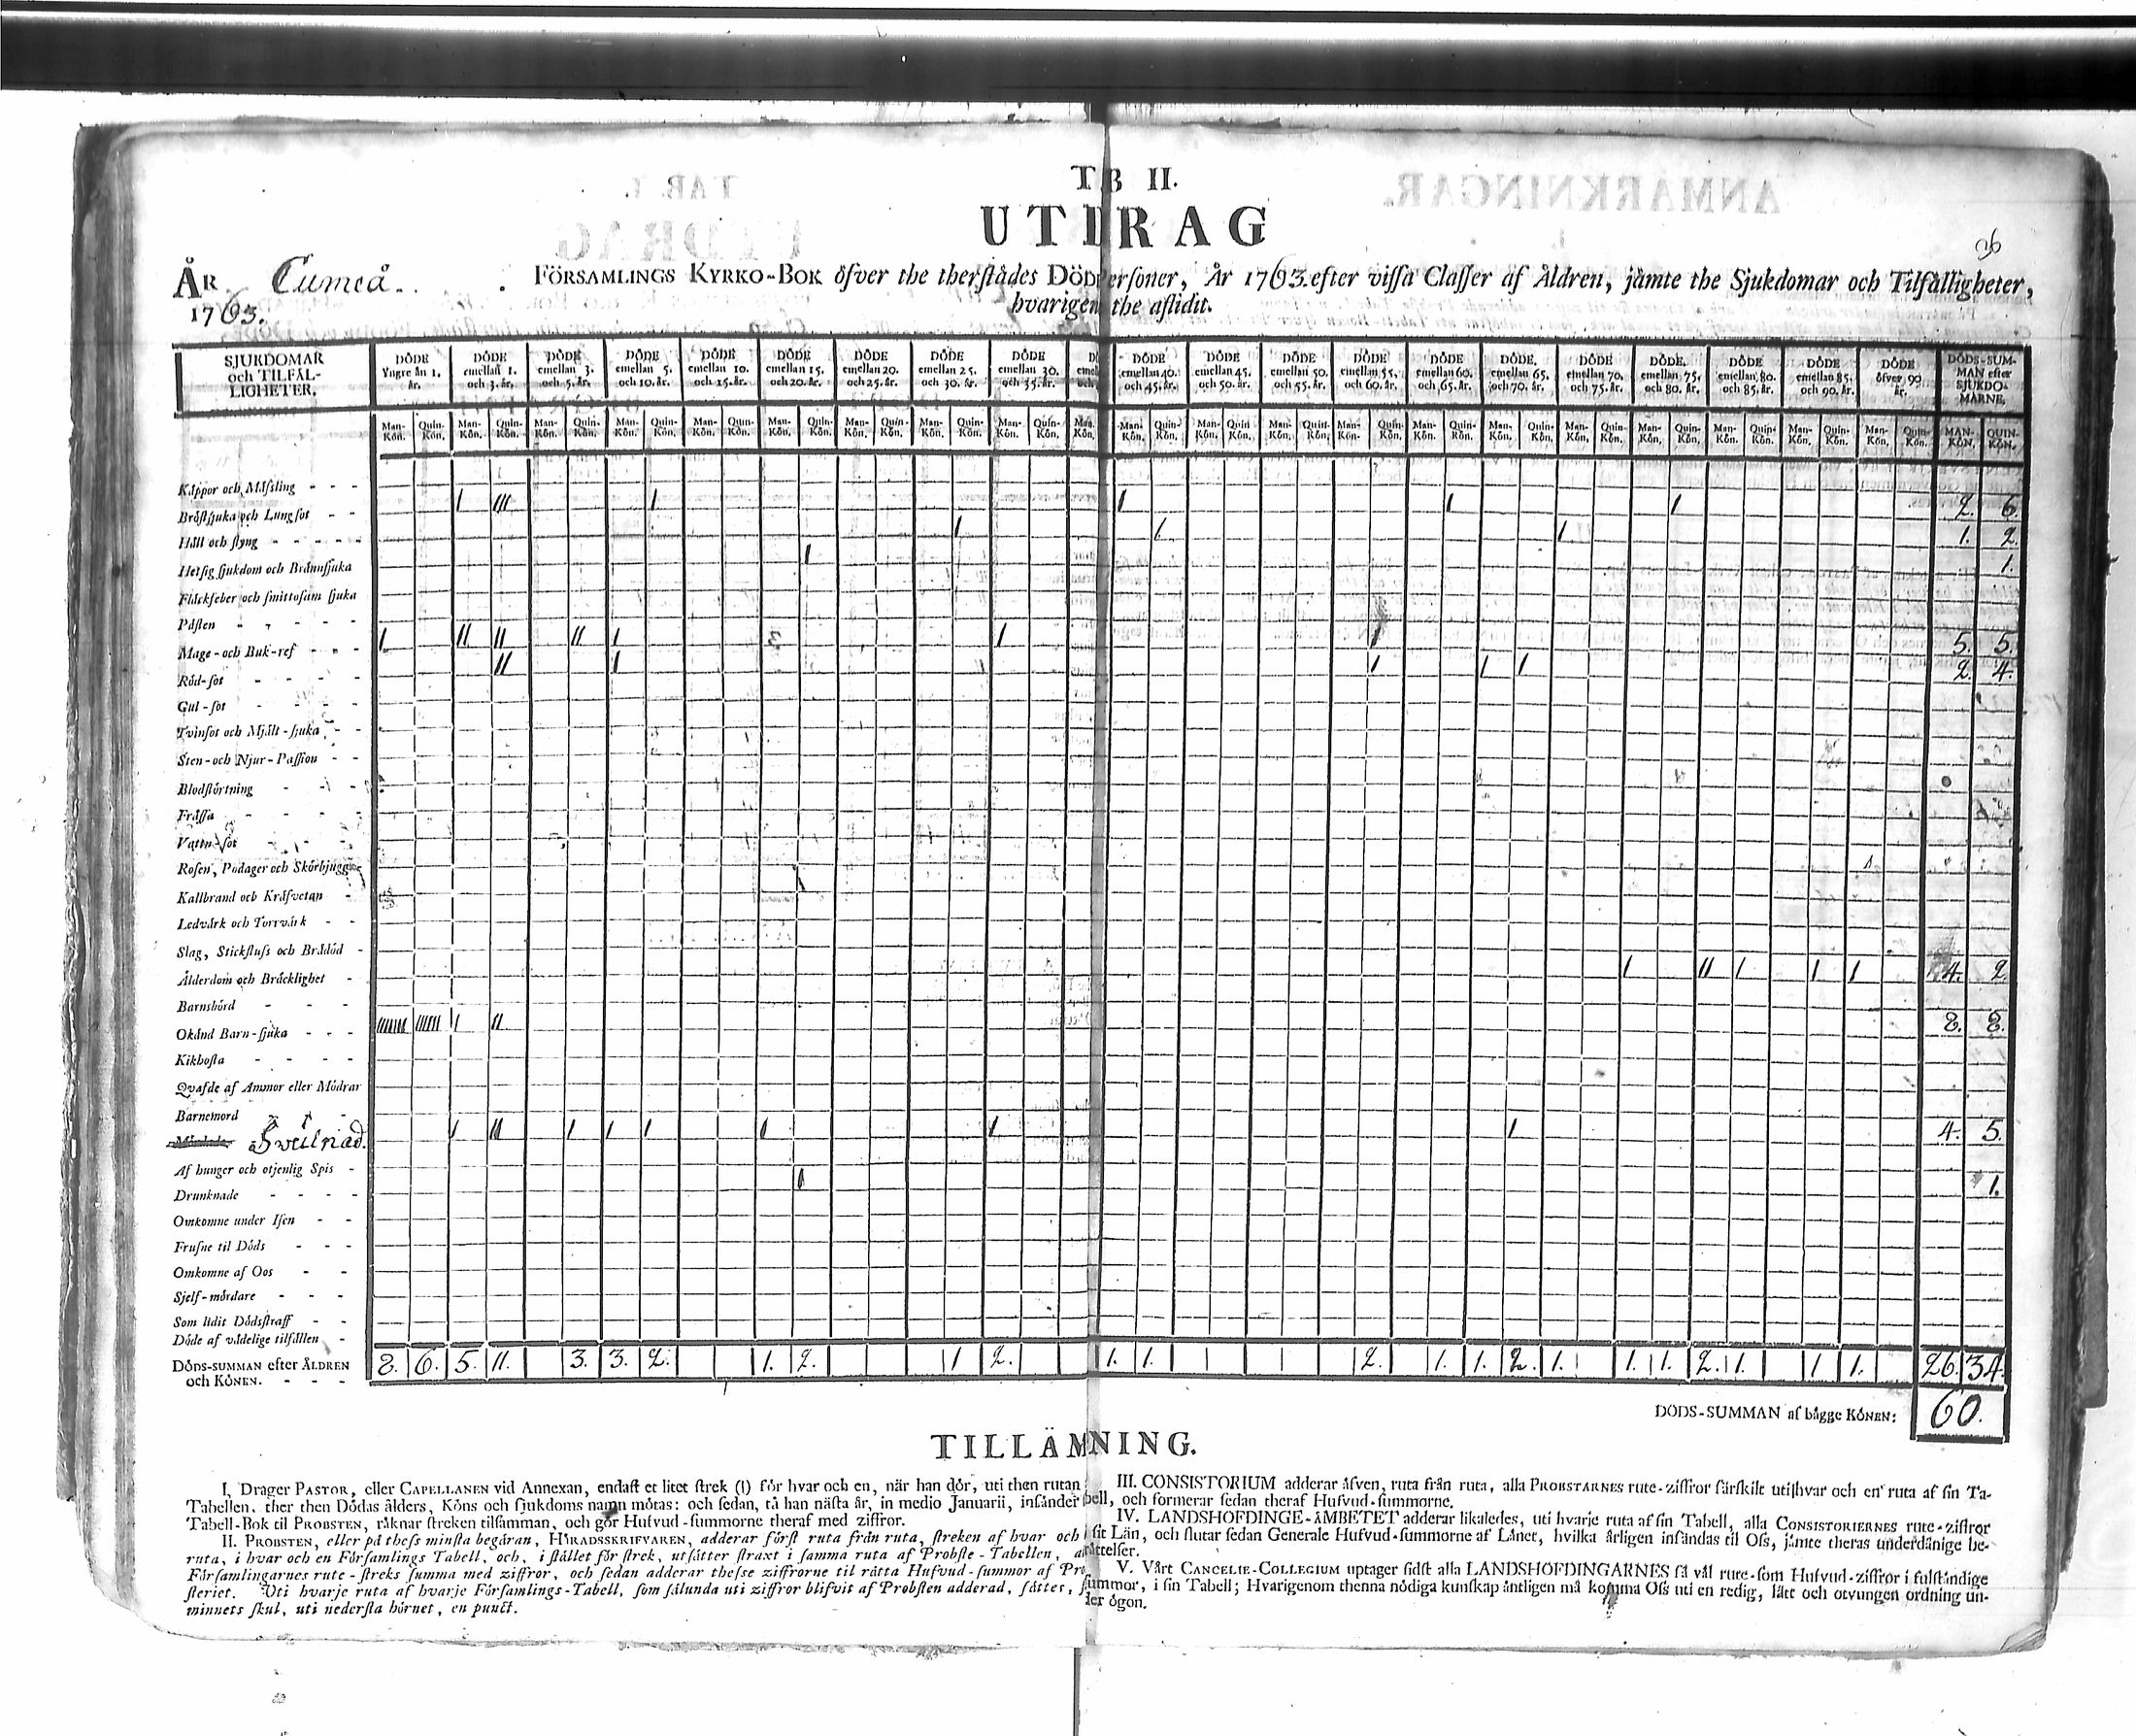 TAB II.
UTDRAG
36
ÅR Cumeå. FÖRSAMLINGS KYRKO-BOK öfver the therstädes DÖDA Personer, År 1763. efter vissa Classer af Åldren, jämte the Sjukdomar och Tilfälligheter,
1763. hvarigenom the aflidit.
SJUKDOMAR och TILFÄL-LIGHETER.
DÖDE Yngre än 1. år.
DÖDE emellan 1. och 3. år.
DÖDE emellan 3. och 5. år.
DÖDE emellan 5. och 10. år.
DÖDE emellan 10. och 15. år.
DÖDE emellan 15. och 20. år.
DÖDE emellan 20. och 25. år.
DÖDE emellan 25. och 30. år.
DÖDE emellan 30. och 35. år.
DÖDE emellan 40. och 45. år.
DÖDE emellan 45. och 50. år.
DÖDE emellan 50. och 55. år.
DÖDE emellan 55. och 60. år.
DÖDE emellan 60. och 65. år.
DÖDE, emellan 65. och 70. år.
DÖDE emellan 70. och 75. år.
DÖDE, emellan 75. och 80. år.
DÖDE emellan 80. och 85. år.
DÖDE emellan 85. och 90. år.
DÖDE öfver 90. år.
DÖDS-SUM-MAN efter SJUKDO-MARNE.
Man-Kön. Quin-Kön. Man-Kön. Quin-Kön. Man-Kön. Quin-Kön. Man-Kön. Quin-Kön. Man-Kön. Quin-Kön. Man-Kön. Quin-Kön. Man-Kön. Quin-Kön. Man-Kön. Quin-Kön. Man-Kön. Quin-Kön. Man-Kön. Man-Kön. Quin-Kön. Man-Kön. Quin-Kön. Man-Kön. Quin-Kön. Man-Kön. Quin-Kön. Man-Kön. Quin-Kön. Man-Kön. Quin-Kön. Man-Kön. Quin-Kön. Man-Kön. Quin-Kön. Man-Kön. Quin-Kön. Man-Kön. Quin-Kön. Man-Kön. Quin-Kön. MAN-KÖN. QUIN-KÖN.
Kåppor och Måssling - - -
I III I I I I 2. 6.
Bröstsjuka och Lungsot - -
I I I 1. 2.
Håll och styng - - - - -
I 1.
Hetsig sjukdom och Brännsjuka
Fläckfeber och smittosam sjuka
Påsten - - - - -
I II II II I I I 5. 5.
Mage-och Buk-ref - - -
II I I I I 2. 4.
Röd-sot - - - -
Gul-sot - - - -
Tvinsot och Mjält-sjuka - -
Sten-och Njur-Passion - -
Blodstörtning - - -
Frässa - - - - -
Vattn-sot - - - -
Rosen, Podager och Skörbjugg
Kallbrand och Kräfvetan -
Ledvärk och Torrvärk - -
Slag, Stickfluss och Brådöd -
I II I I I 4. 2
Ålderdom och Bräcklighet -
Barnsbörd - - -
IIIIIII IIIIII I II 8. 8.
Okänd Barn-sjuka - - -
Kikhosta - - - -
Qväfde af Ammor eller Mödrar
Barnemord -
I II I I I I I I 4. 5.
Af hunger och otjenlig Spis -
I 1.
Drunknade - - - -
Omkomne under Isen - -
Frusne til Döds - - -
Omkomne af Oos - -
Sjelf-mördare - - -
Som lidit Dödsstraff - -
Döde af vådelige tilfällen -
DÖDS-SUMMAN efter ÅLDREN och KÖNEN. - - - 8. 6. 5. 11. 3. 3. 2. 1. 2. 1 2. 1. 1. 2. 1. 1. 2. 1. 1. 1. 2. 1. 1 1. 26. 34.
DÖDS-SUMMAN af bägge KÖNEN: 60.
TILLÄMNING.
I. Drager PASTOR, eller CAPELLANEN vid Annexan, endast et litet strek (I) för hvar och en, när han dör, uti then rutan
Tabellen, ther then Dödas ålders, Köns och sjukdoms namn mötas: och sedan, tå han nästa år, in medio Januarii, insänder
Tabell-Bok til PROBSTEN, räknar streken tilsämman, och gör Hufvud-summorne theraf med ziffror.
II. PROBSTEN, eller på thess minsta begäran, HÄRADSSKRIFVAREN, adderar först ruta från ruta, streken af hvar och
ruta, i hvar och en Församlings Tabell, och, i stället för strek, utsätter straxt i samma ruta af Probste-Tabellen,
Församlingarnes rute-streks summa med ziffror, och sedan adderar thesse ziffrorne til rätta Hufvud-summor af
steriet. Uti hvarje ruta af hvarje Församlings-Tabell, som sålunda uti ziffror blifvit af Probsten adderad, sättes,
minnets skul, uti nedersta hörnet, en punct.
III. CONSISTORIUM adderar äfven, ruta från ruta, alla PROBSTARNES rute-ziffror särskilt uti hvar och en ruta af sin Ta-
bell, och formerar sedan theraf Hufvud-summorne.
IV. LANDSHÖFDINGE-ÄMBETET adderar likaledes, uti hvarje ruta af sin Tabell, alla CONSISTORIERNES rute-ziffror
sit Län, och slutar sedan Generale Hufvud-summorne af Länet, hvilka årligen insändas til Oss, jämte theras underdånige be-
rättelser.
V. Vårt CANCELIE-COLLEGIUM uptager sidst alla LANDSHÖFDINGARNES så väl rute-som Hufvud-ziffror i fulständige
summor, i sin Tabell; Hvarigenom thenna nödiga kunskap äntligen må komma Oss uti en redig, lätt och otvungen ordning un-
der ögon.